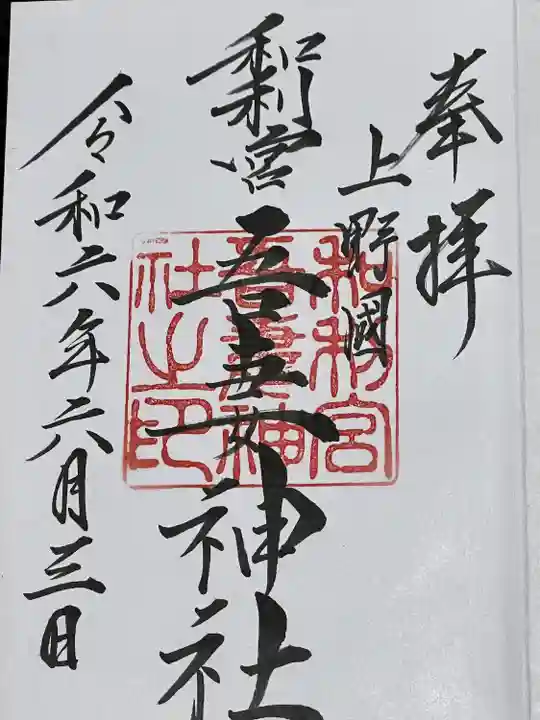 奉拝
上野國
和利宮
吾妻神社
令和六年六月三日
和利宮
吾妻神
社之印